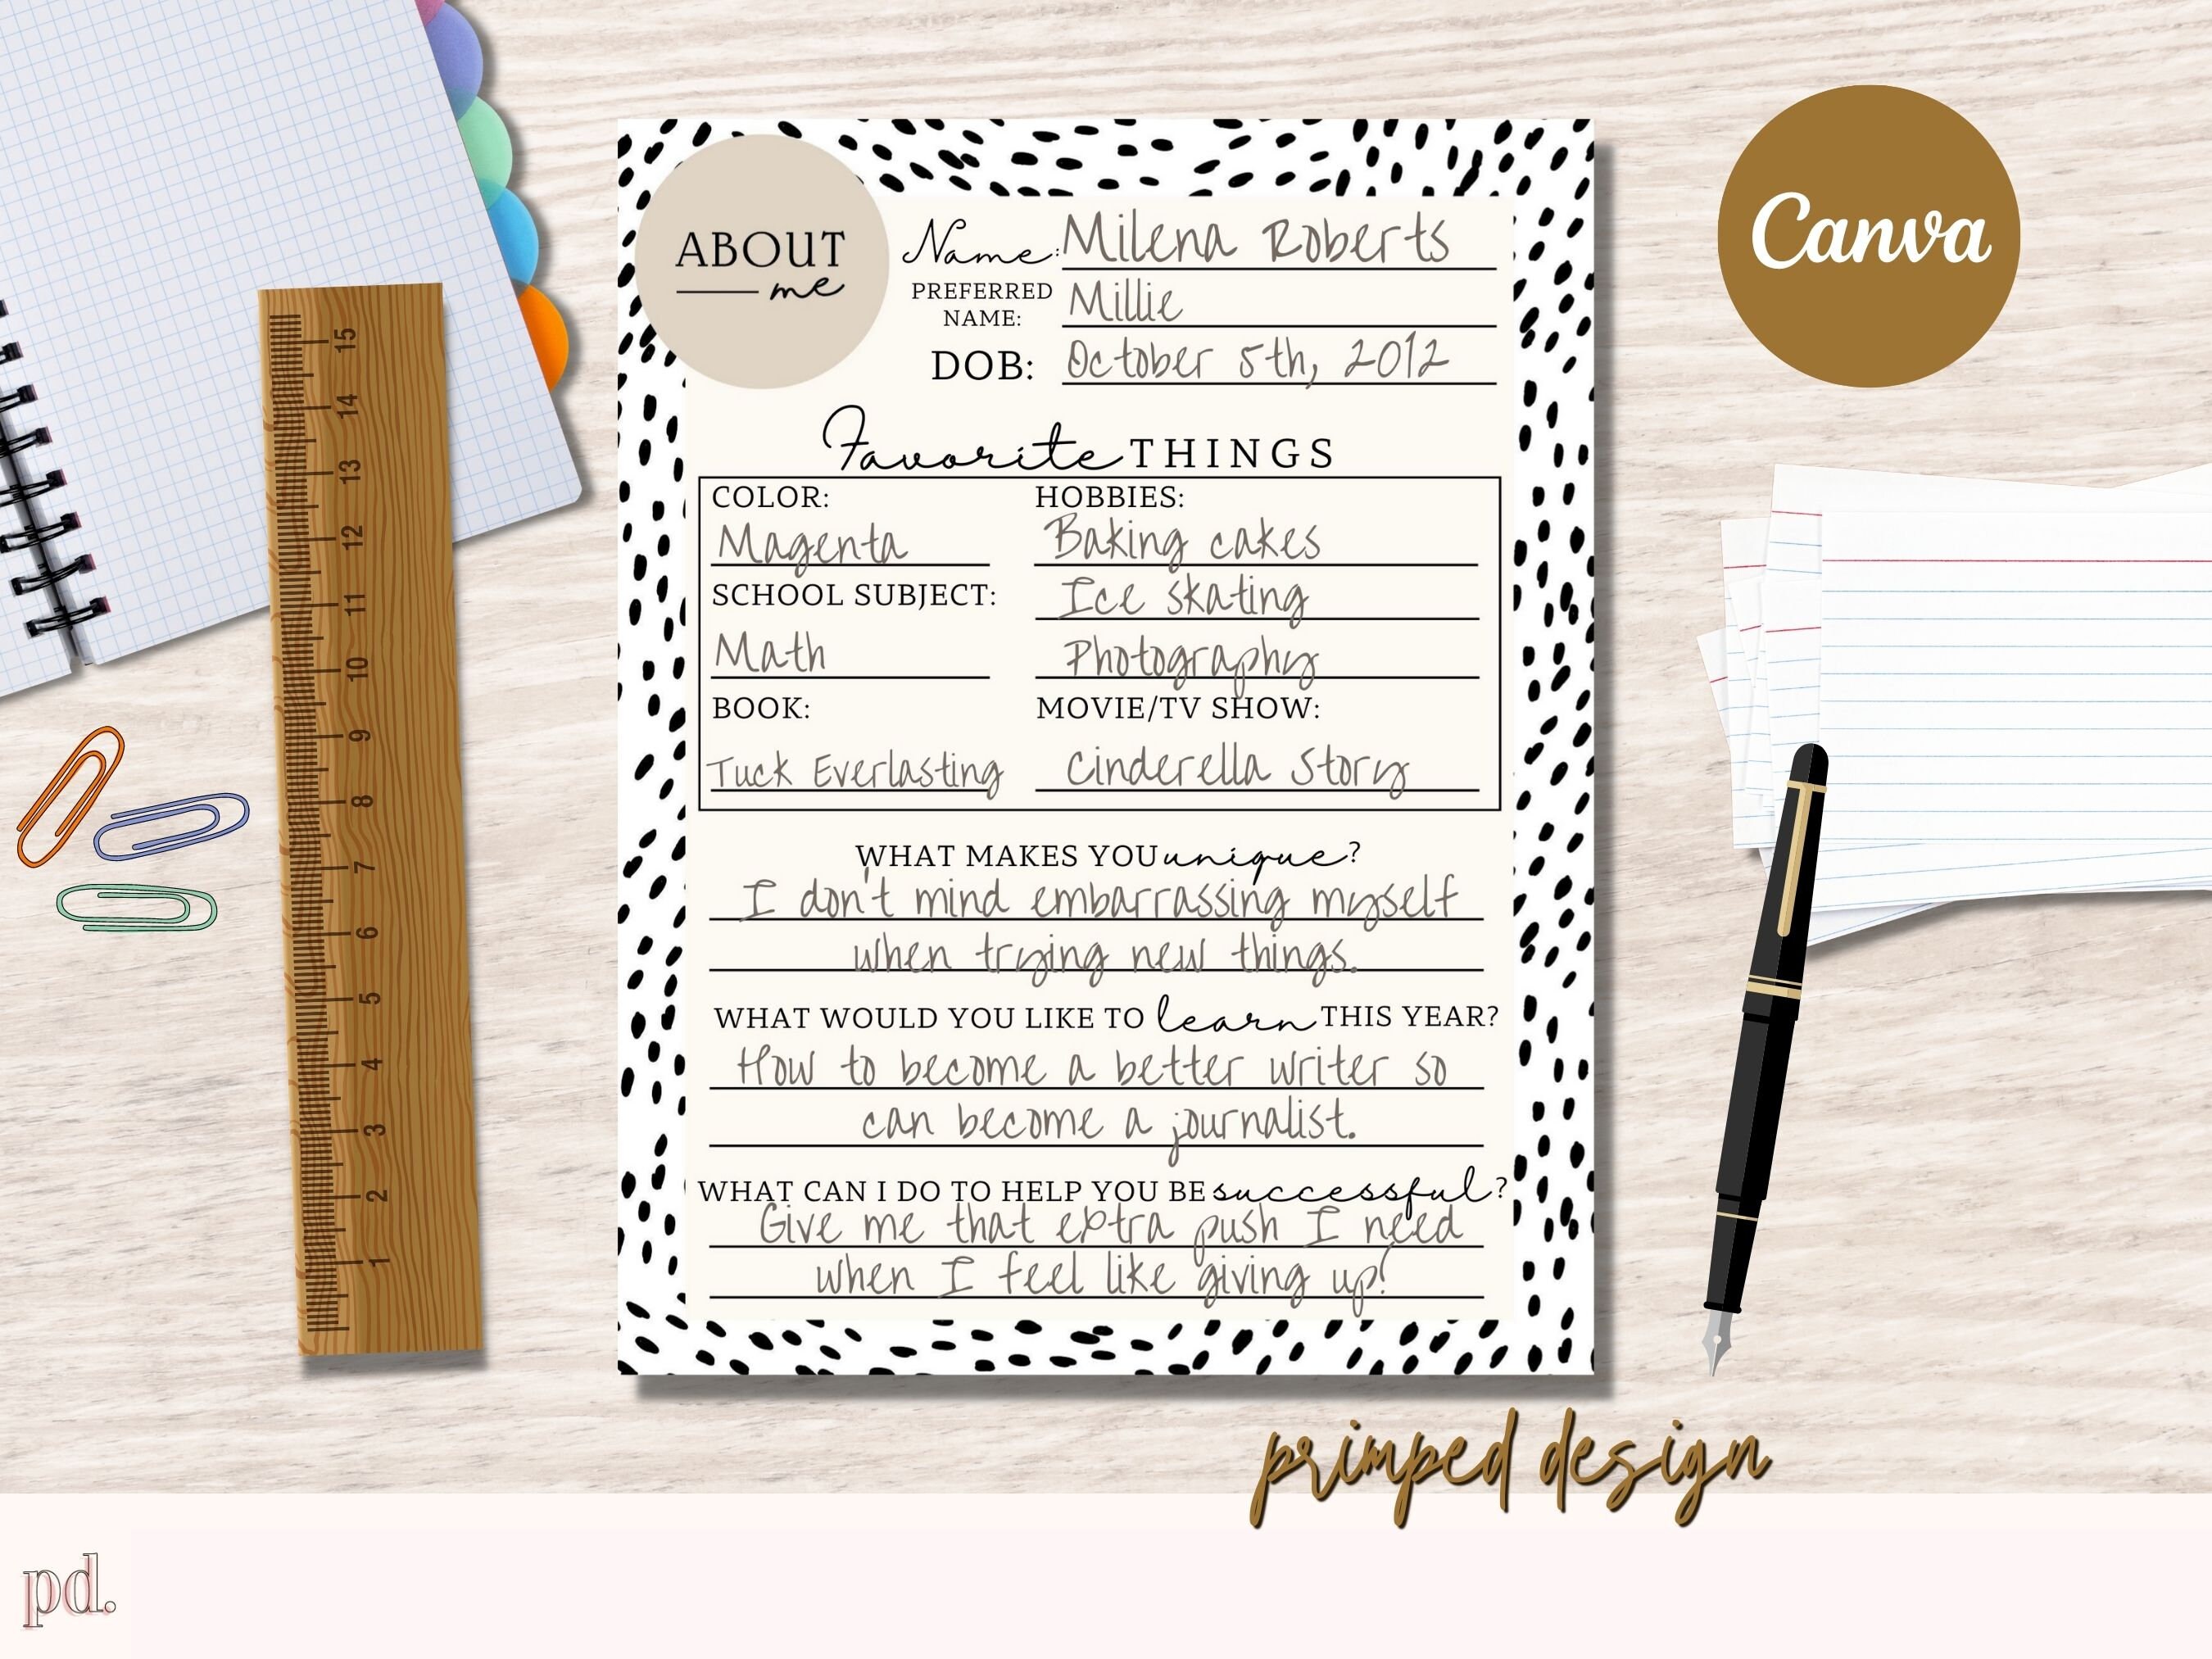 ABOUT
me
Name: Milena Roberts
PREFERRED NAME: Millie
DOB: October 5th, 2012
Favorite THINGS
COLOR:
Magenta
HOBBIES:
Baking cakes
Ice skating
Photography
SCHOOL SUBJECT:
Math
BOOK:
Tuck Everlasting
MOVIE/TV SHOW:
Cinderella Story
WHAT MAKES YOU unique?
I don't mind embarrassing myself
when trying new things.
WHAT WOULD YOU LIKE TO learn THIS YEAR?
How to become a better writer so
can become a journalist.
WHAT CAN I DO TO HELP YOU BE successful?
Give me that extra push I need
when I feel like giving up!
Canva
15
14
13
12
11
10
9
8
7
6
5
4
3
2
1
primped design
pd.